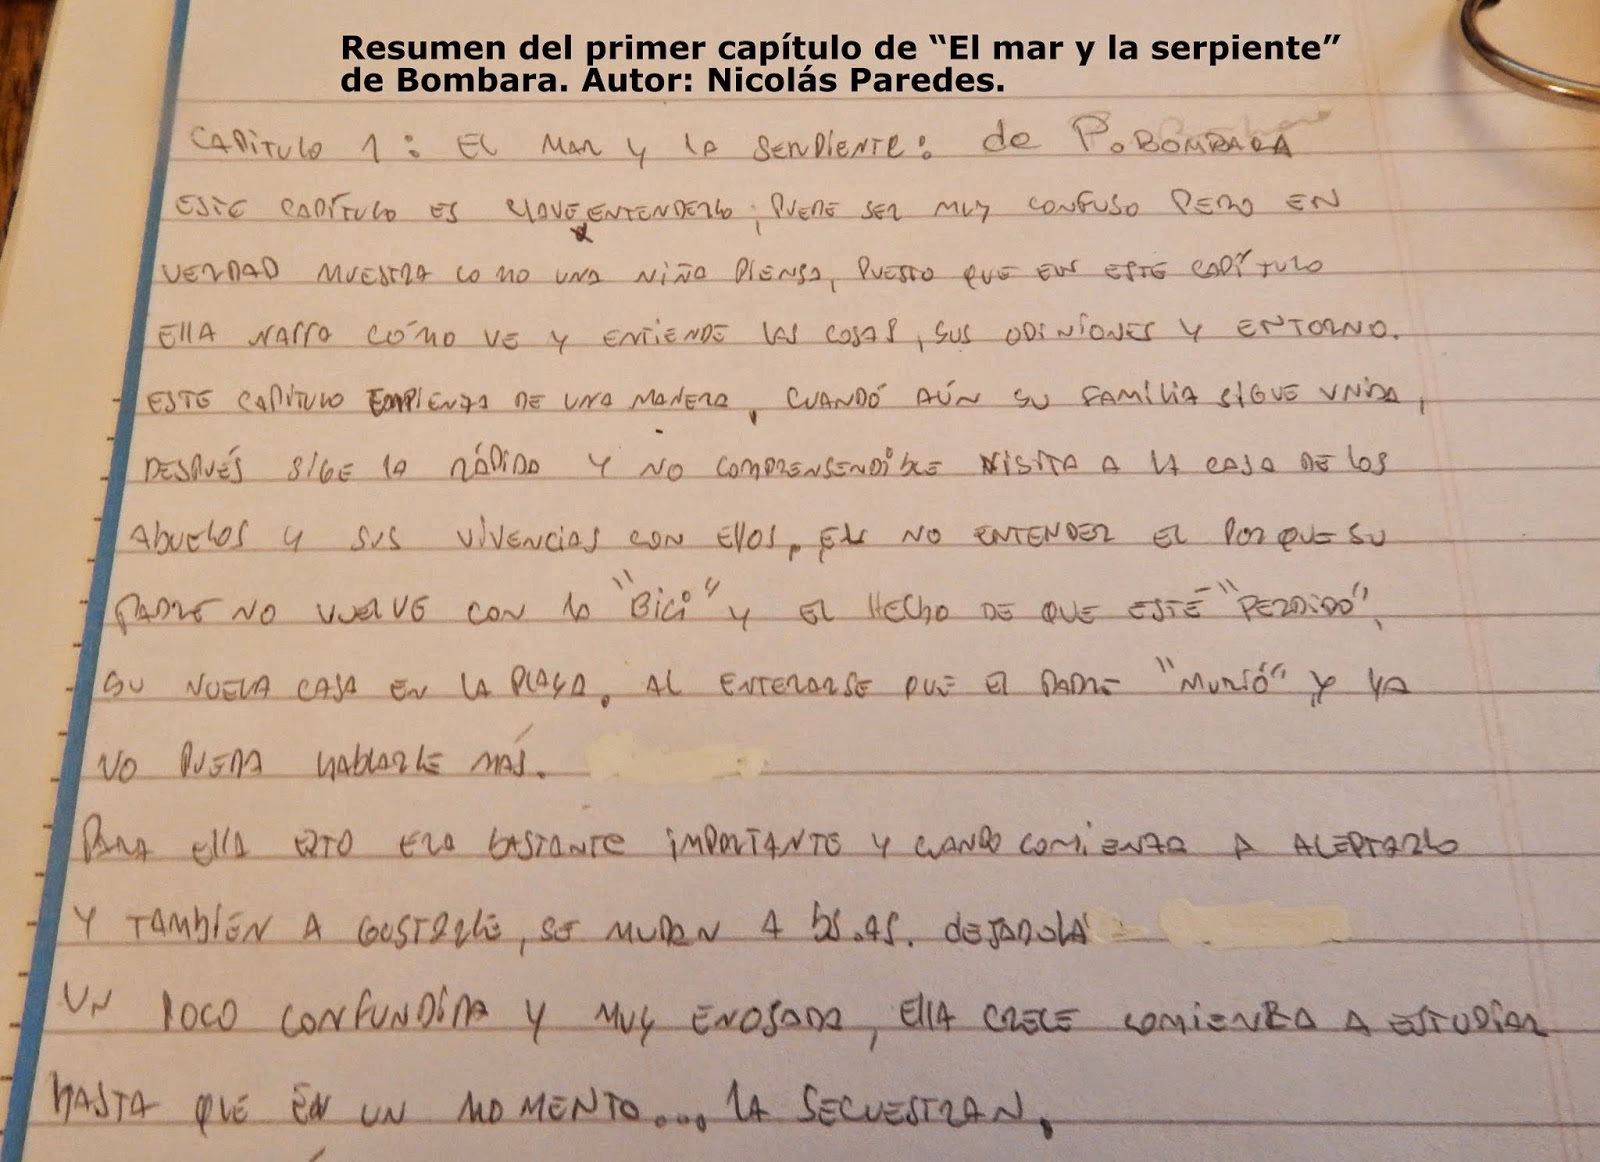 Resumen del primer capítulo de “El mar y la serpiente”
de Bombara. Autor: Nicolás Paredes.
CAPíTULO 1: EL MAR Y LA SERPIENTE: de P. BOMBARA
ESTE CAPÍTULO ES CLAVE ENTENDERLO; PUEDE SER MUY CONFUSO PERO EN
VERDAD MUESTRA COMO UNA NIÑA PIENSA, PUESTO QUE EN ESTE CAPÍTULO
EllA NARRA CÓMO VE Y ENTIENDE LAS COSAS, SUS OPINÍONES Y ENTORNO.
ESTE CAPÍTULO EMPIENZA DE UNA MANERA, CUANDÓ AÚN SU FAMíLIA SIGUE UNIDA,
DESPUÉS SIGE LA RÁPIDA Y NO COMPRENSENDIBLE VISITA A LA CASA DE LOS
AbUELOS Y SUS VIVENCIAS CON EllOS, EL NO ENTENDER EL PORQUE SU
PADRE NO VUELVE CON LA "BiCi" Y EL HECHO DE QUE ESTÉ "PERDIDO",
SU NUEVA CASA EN LA PLAYA. AL ENTERARSE QUE El PADRE "MURIÓ" Y YA
NO PUEDA HABLARLE MÁS.
PARA EllA ESTO ERA bASTANTE iMPORTANTE Y CUANDO COMiENZA A ACEPTARLO
Y TAMbIÉN A GUSTARLE, SE MUDAN A bS.AS. dEJANDOLA
UN POCO CONFUNDíDA Y MUY ENOJADA, EllA CRECE COMIENZA A ESTUDíAR
HASTA QUE EN UN MOMENTO.... LA SECUESTRAN.